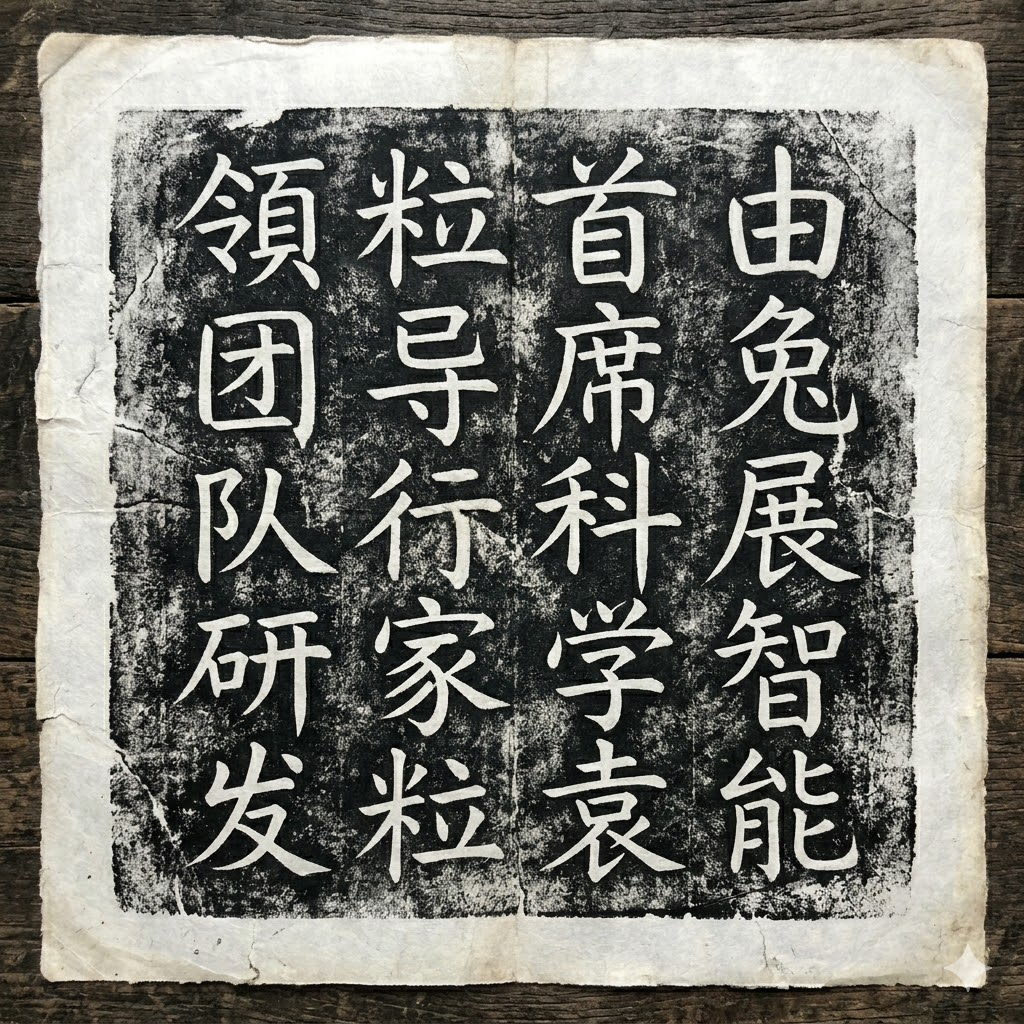 由兔展智能
首席科学袁
粒导行家粒
領团队研发